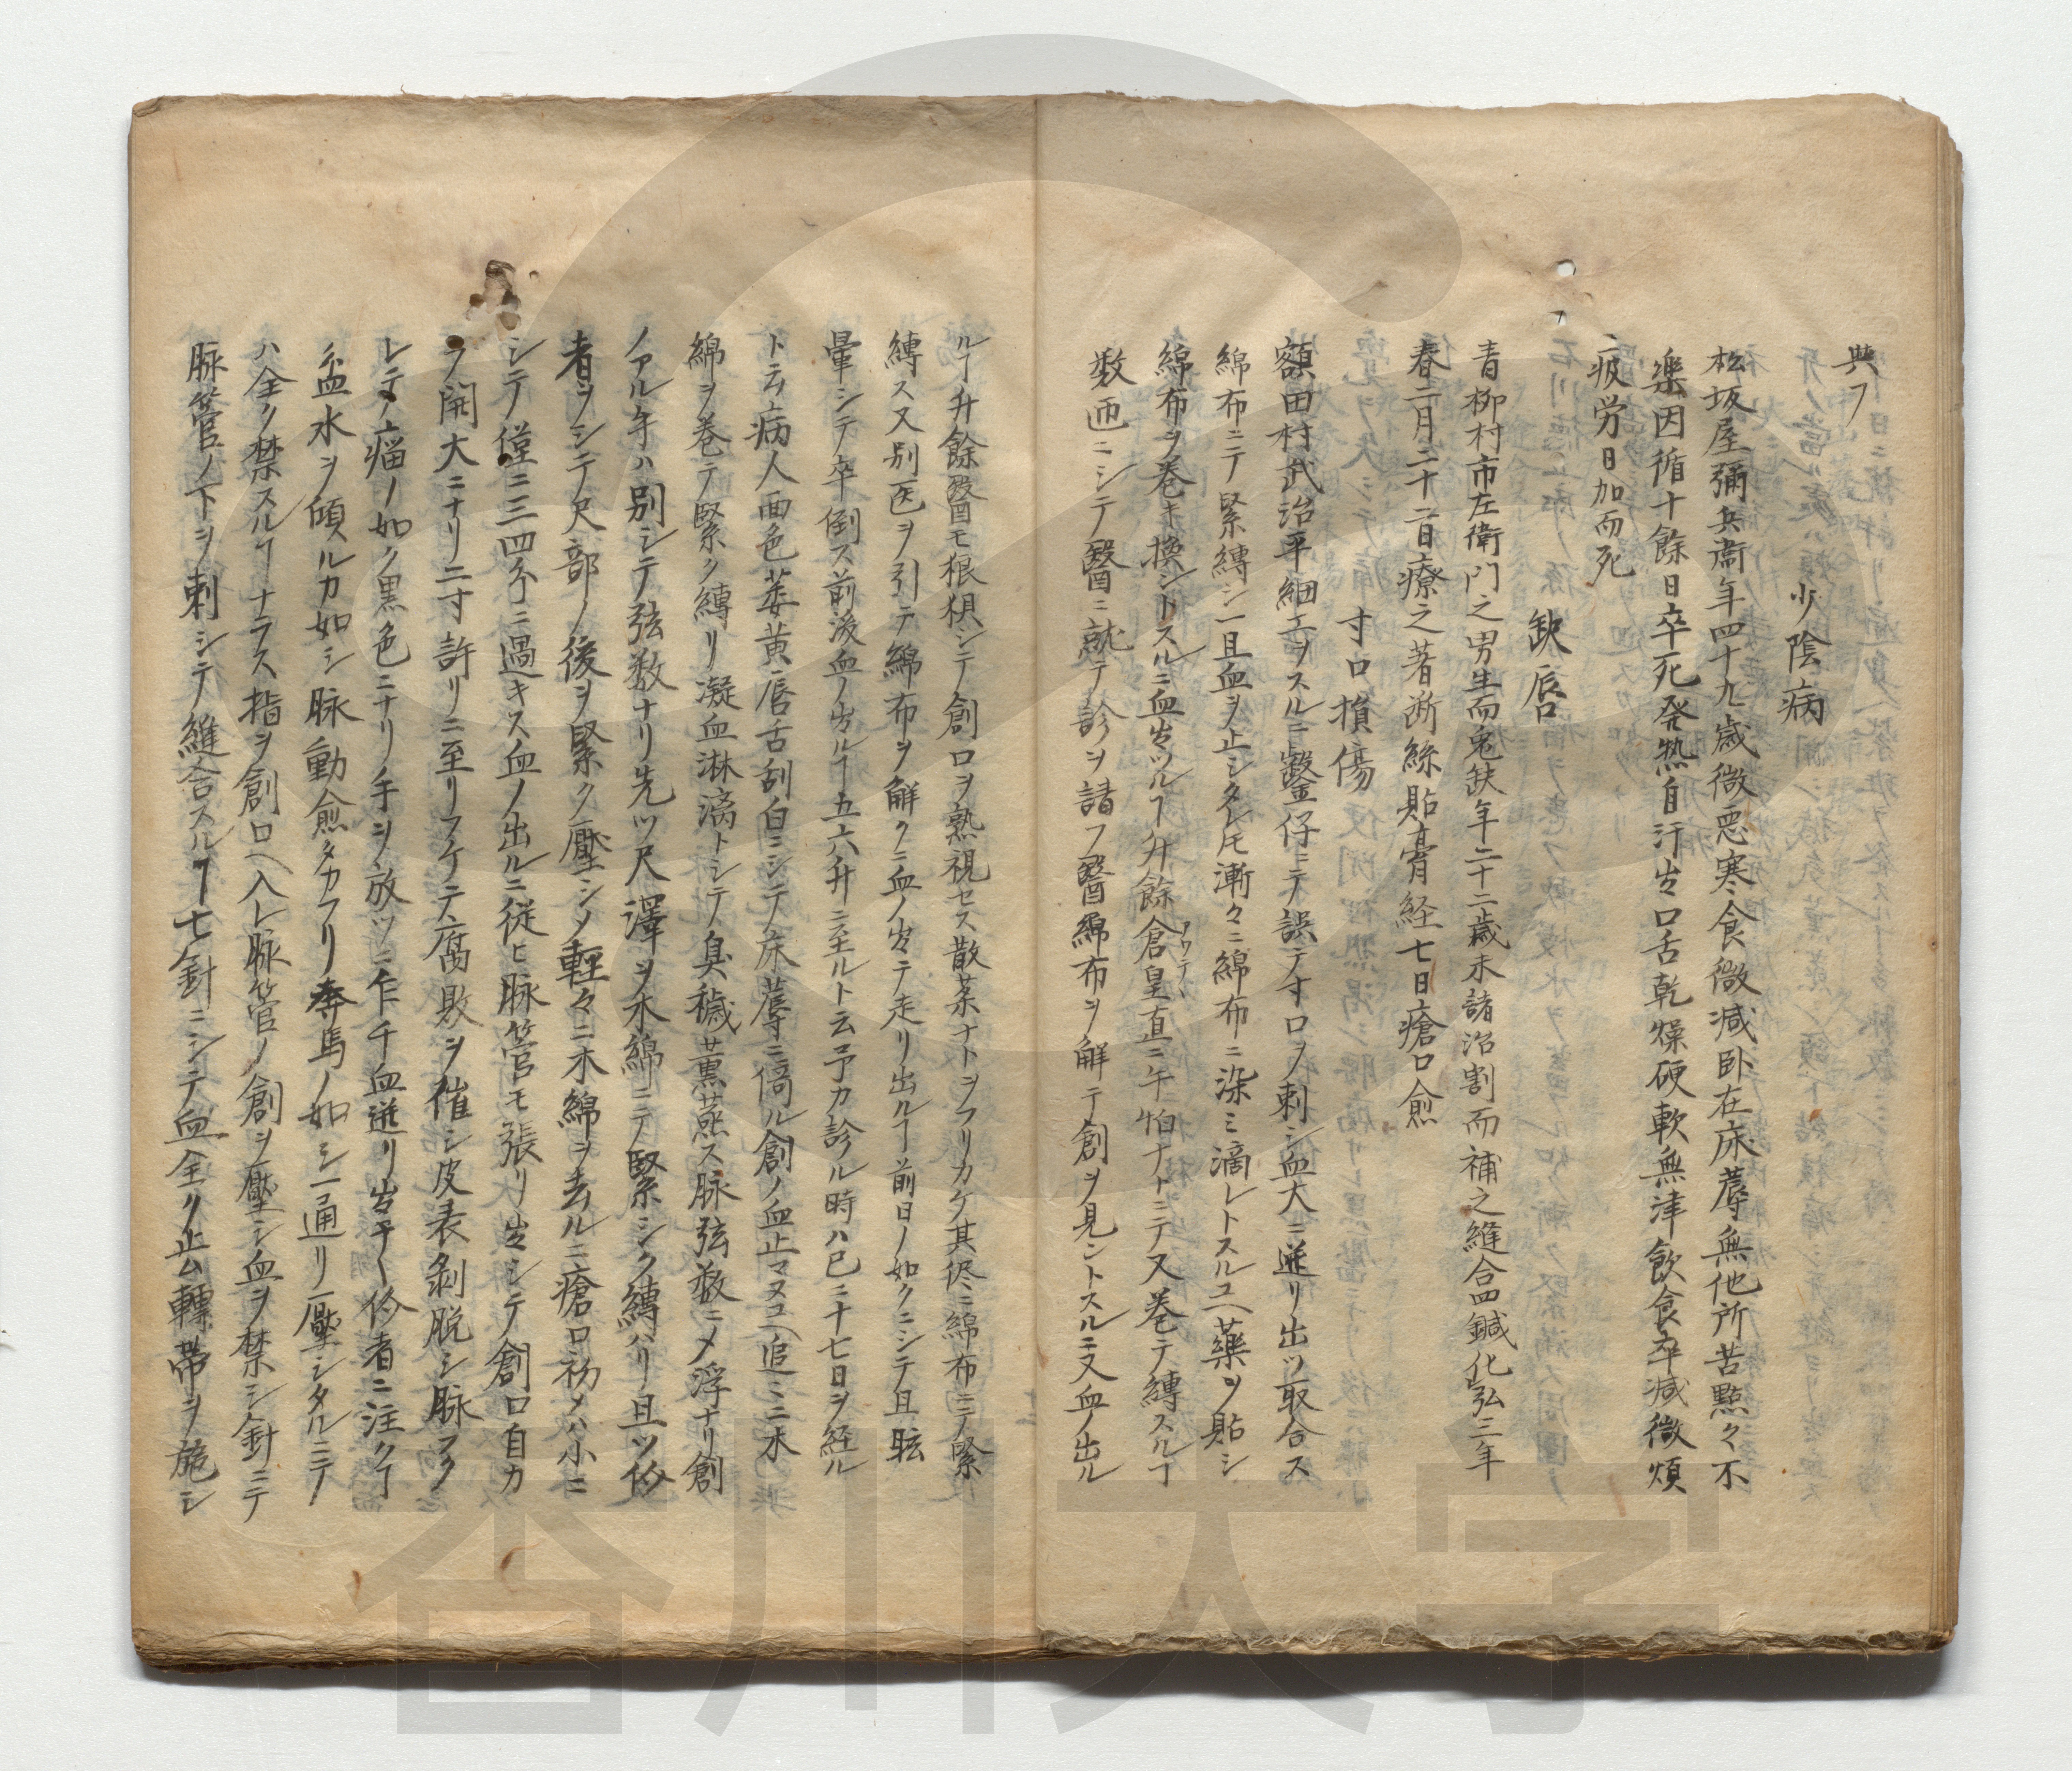 典フ
少陰病
松坂屋彌兵衞年四十九歳微悪寒食微減卧在床蓐無他所苦黙々不
樂因循十餘日卒死発熱自汗出口舌乾燥硬軟無津飲食卒減微煩
疲労日加而死
缺唇
青柳村市左衛門之男生而兎缺年二十二歳末諸治割而補之縫合四鍼化弘三年
春二月二十二日療之著断絲貼膏経七日瘡口愈
寸口損傷
額田村武治平細工ヲスルニ鑿仔ニテ誤テ寸口ヲ刺シ血大ニ迸リ出ツ取合ス
綿布ニテ緊縛シ一且血ヲ止シタレ𪜈漸々ニ綿布ニ染ミ滴レトスルユヘ藥ヲ貼シ
綿布ヲ巻キ換ントスルニ血出ツルヿ升餘倉皇直ニ午怕ナトニテ又巻テ縛スルヿ
アワテヽ
数匝ニシテ醫ニ就テ診ヲ請フ醫綿布ヲ解テ創ヲ見ントスルニ又血ノ出ル
ルヿ升餘醫モ狼狽シテ創口ヲ熟視セス散薬ナトヲフリカケ其侭ニ綿布ニテ緊
縛ス又別医ヲ引テ綿布ヲ解クニ血ノ出テ走リ出ルヿ前日ノ如クニシテ且眩
暈シテ卒倒ス前後血ノ出ルヿ五六升ニ至ルト云予カ診ル時ハ已ニ十七日ヲ経ル
ト云病人面色萎黄唇舌刮白ニシテ床蓐ニ倚ル創ノ血止マヌユヘ追ミニ木
綿ヲ巻テ緊ク縛リ凝血淋漓トシテ臭穢薫蒸ス脉弦数ニメ浮ナリ創
ノアル年ハ別シテ弦数ナリ先ツ尺澤ヲ木綿ニテ緊シク縛ハリ且ツ伱
者ヲシテ尺部ノ後ヲ緊ク壓シメ軽々ニ木綿ヲ去ルニ瘡口初メハ小ニ
シテ僅ニ三四分ニ過キス血ノ出ルニ従ヒ脉管モ張リ出シテ創口自カ
ラ開大ニナリ二寸許リニ至リフケテ腐敗ヲ催シ皮表剝脱シ脉フク
レテ瘤ノ如ク黒色ニナリ手ヲ放ツニ乍千血迸リ出テ伱者ニ注クヿ
盆水ヲ傾ルカ如シ脉動愈タカフリ奔馬ノ如シ一通リ壓シタルニテ
ハ全ク禁スルヿナラス指ヲ創口ヘ入レ脉管ノ創ヲ壓シ血ヲ禁シ針ニテ
脉管ノ下ヲ刺シテ縫合スルヿ七針ニシテ血全ク止ム轉帶ヲ施シ
香川大学